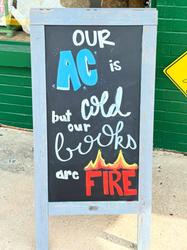 OUR
AC is
but cold
our
books
are FIRE